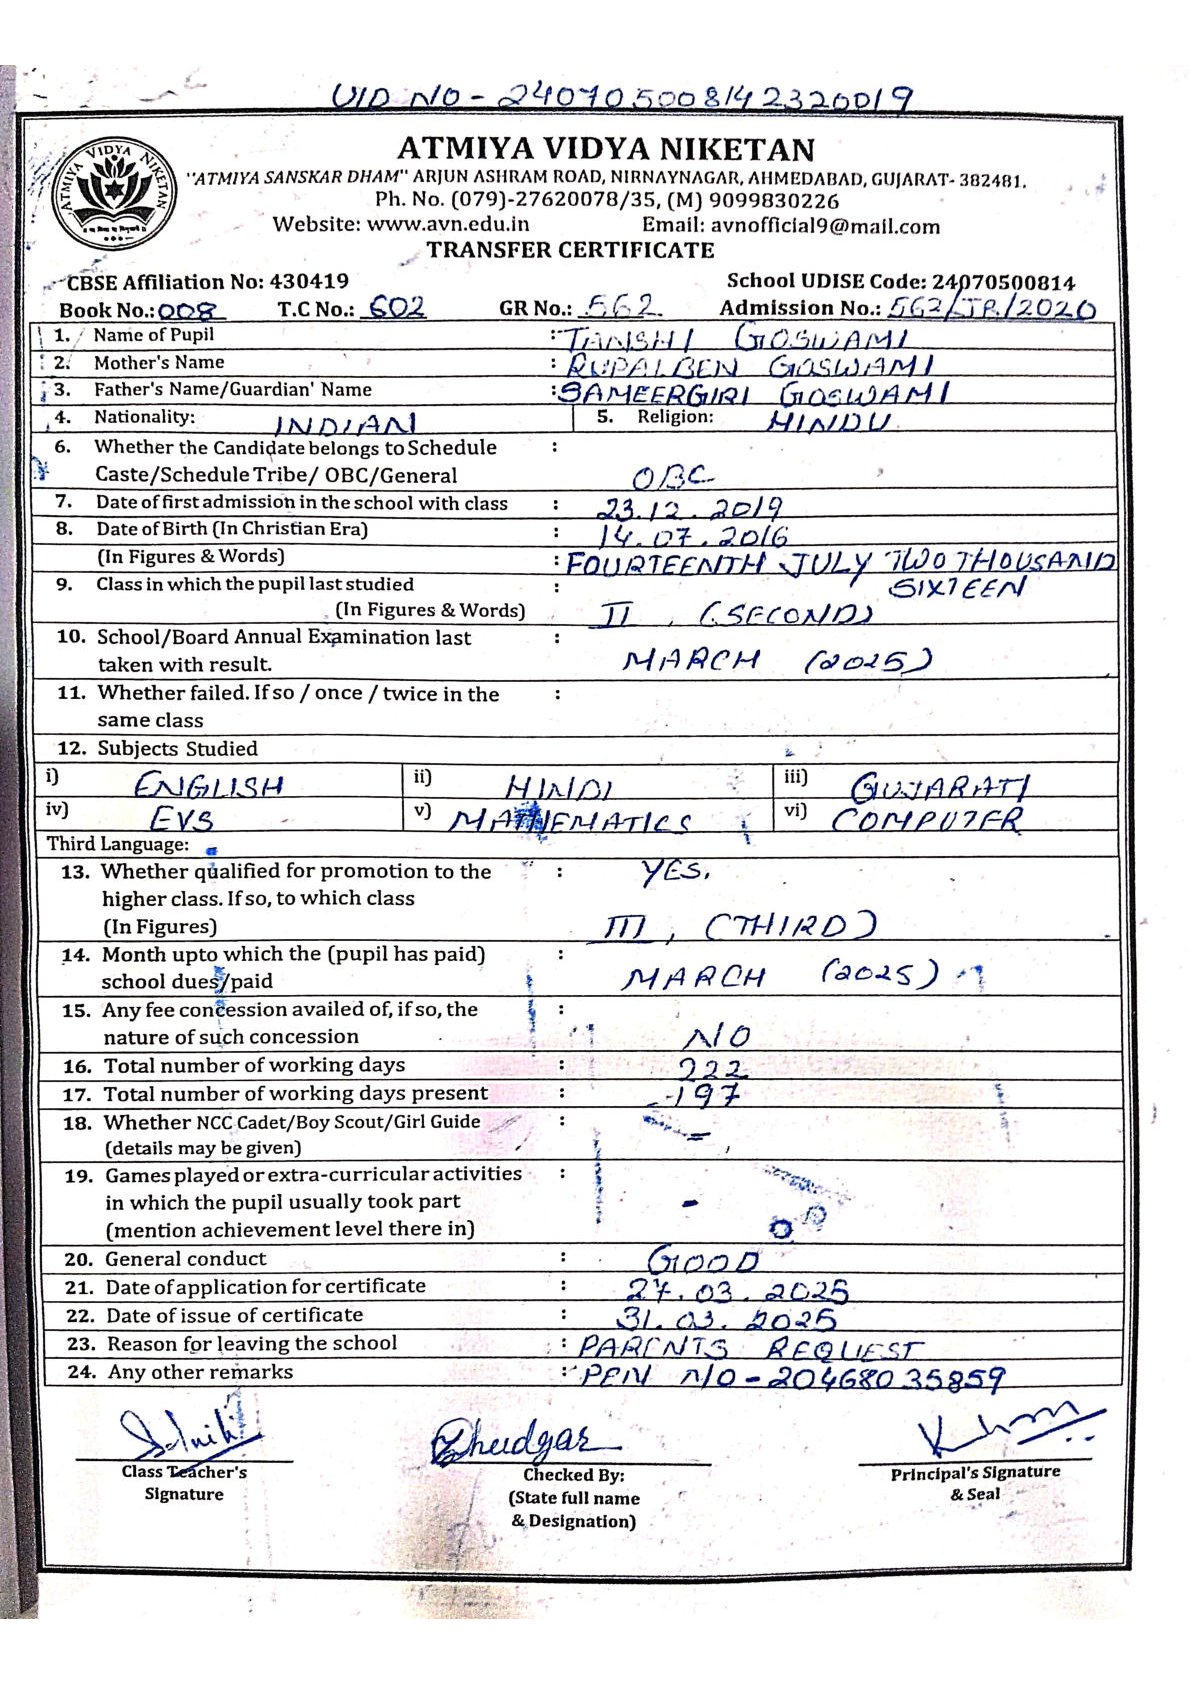 UID NO - 240705008142320019
ATMIYA VIDYA NIKETAN
ATMIYA VIDYA NIKETAN
"ATMIYA SANSKAR DHAM" ARJUN ASHRAM ROAD, NIRNAYNAGAR, AHMEDABAD, GUJARAT- 382481.
Ph. No. (079)-27620078/35, (M) 9099830226
Website: www.avn.edu.in Email: avnofficial9@mail.com
TRANSFER CERTIFICATE
CBSE Affiliation No: 430419 School UDISE Code: 24070500814
Book No.: 008 T.C No.: 602 GR No.: 562 Admission No.: 562/JR/2020
1. Name of Pupil : TANISHI GOSWAMI
2. Mother's Name : RUPALBEN GOSWAMI
3. Father's Name/Guardian' Name : SAMEERGIRI GOSWAMI
4. Nationality: INDIAN 5. Religion: HINDU
6. Whether the Candidate belongs to Schedule :
Caste/Schedule Tribe/ OBC/General OBC
7. Date of first admission in the school with class : 23.12.2019
8. Date of Birth (In Christian Era) : 14.07.2016
(In Figures & Words) : FOURTEENTH JULY TWO THOUSAND
9. Class in which the pupil last studied : SIXTEEN
(In Figures & Words) II, (SECOND)
10. School/Board Annual Examination last :
taken with result. MARCH (2025)
11. Whether failed. If so / once / twice in the :
same class
12. Subjects Studied
i) ENGLISH ii) HINDI iii) GUJARATI
iv) EVS v) MATHEMATICS vi) COMPUTER
Third Language:
13. Whether qualified for promotion to the : YES.
higher class. If so, to which class
(In Figures) III, (THIRD)
14. Month upto which the (pupil has paid) :
school dues/paid MARCH (2025)
15. Any fee concession availed of, if so, the :
nature of such concession NO
16. Total number of working days : 222
17. Total number of working days present : 197
18. Whether NCC Cadet/Boy Scout/Girl Guide :
(details may be given) -
19. Games played or extra-curricular activities :
in which the pupil usually took part -
(mention achievement level there in)
20. General conduct : GOOD
21. Date of application for certificate : 27.03.2025
22. Date of issue of certificate : 31.03.2025
23. Reason for leaving the school : PARENTS REQUEST
24. Any other remarks : PEN NO - 20468035859
Class Teacher's Checked By: Principal's Signature
Signature (State full name & Seal
& Designation)